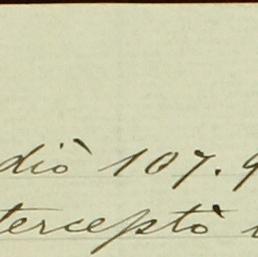 diò 107.9
terceptò